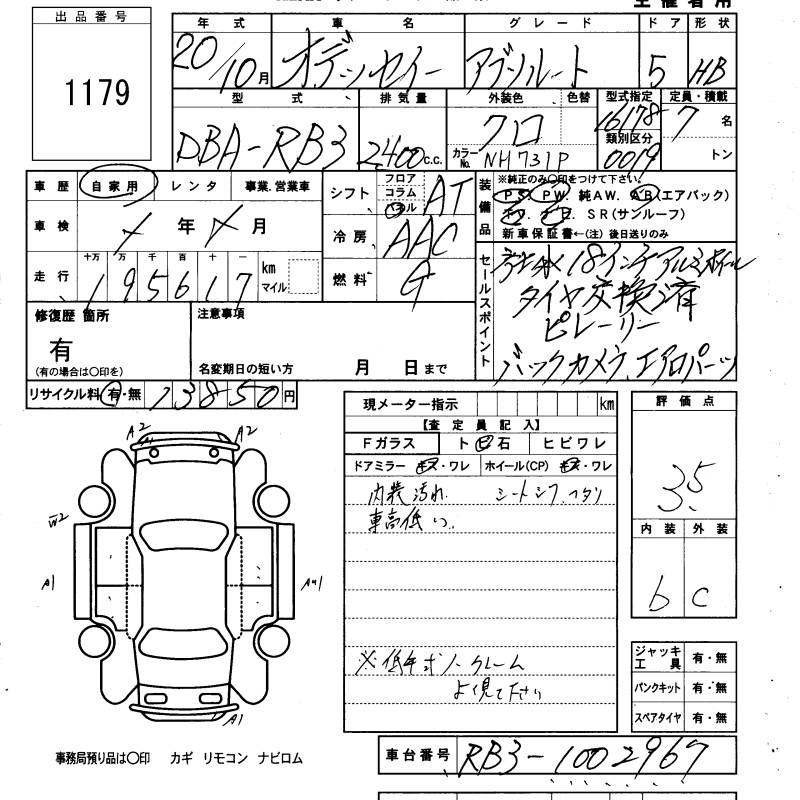 出品番号
1179
年式 車名 グレード ドア 形状
20/10月 オデッセイ アブソルート 5 HB
型式 排気量 外装色 色替 型式指定 定員・積載
DBA-RB3 2400c.c. クロ 16178 7名
カラーNo. NH731P 類別区分 0019 トン
車歴 自家用 レンタ 事業.営業車
車検 年 月
走行 十万 万 千 百 十 一
195617 km マイル
シフト フロア コラム パネル AT
冷房 AAC
燃料 G
装備品
※純正のみ〇印をつけて下さい。
PS. PW. 純AW. AB(エアバック)
SR(サンルーフ)
新車保証書←(注)後日送りのみ
セールスポイント
18インチアルミホイール
タイヤ交換済
ピレーリー
バックカメラ.エアロパーツ
修復歴 箇所
有
(有の場合は〇印を)
注意事項
名変期日の短い方 月 日まで
リサイクル料 有・無 13850円
現メーター指示 km
【査定員記入】
Fガラス ト 石 ヒビワレ
ドアミラー キズ・ワレ ホイール(CP) キズ・ワレ
内装汚れ シートシワ.ヘタリ
車高低い
※低年式ノークレーム
よく見て下さい
評価点
3.5
内装 外装
b C
ジャッキ工具 有・無
パンクキット 有・無
スペアタイヤ 有・無
A2 A2
W2
A1
A1
事務局預り品は〇印 カギ リモコン ナビロム
車台番号 RB3-1002967